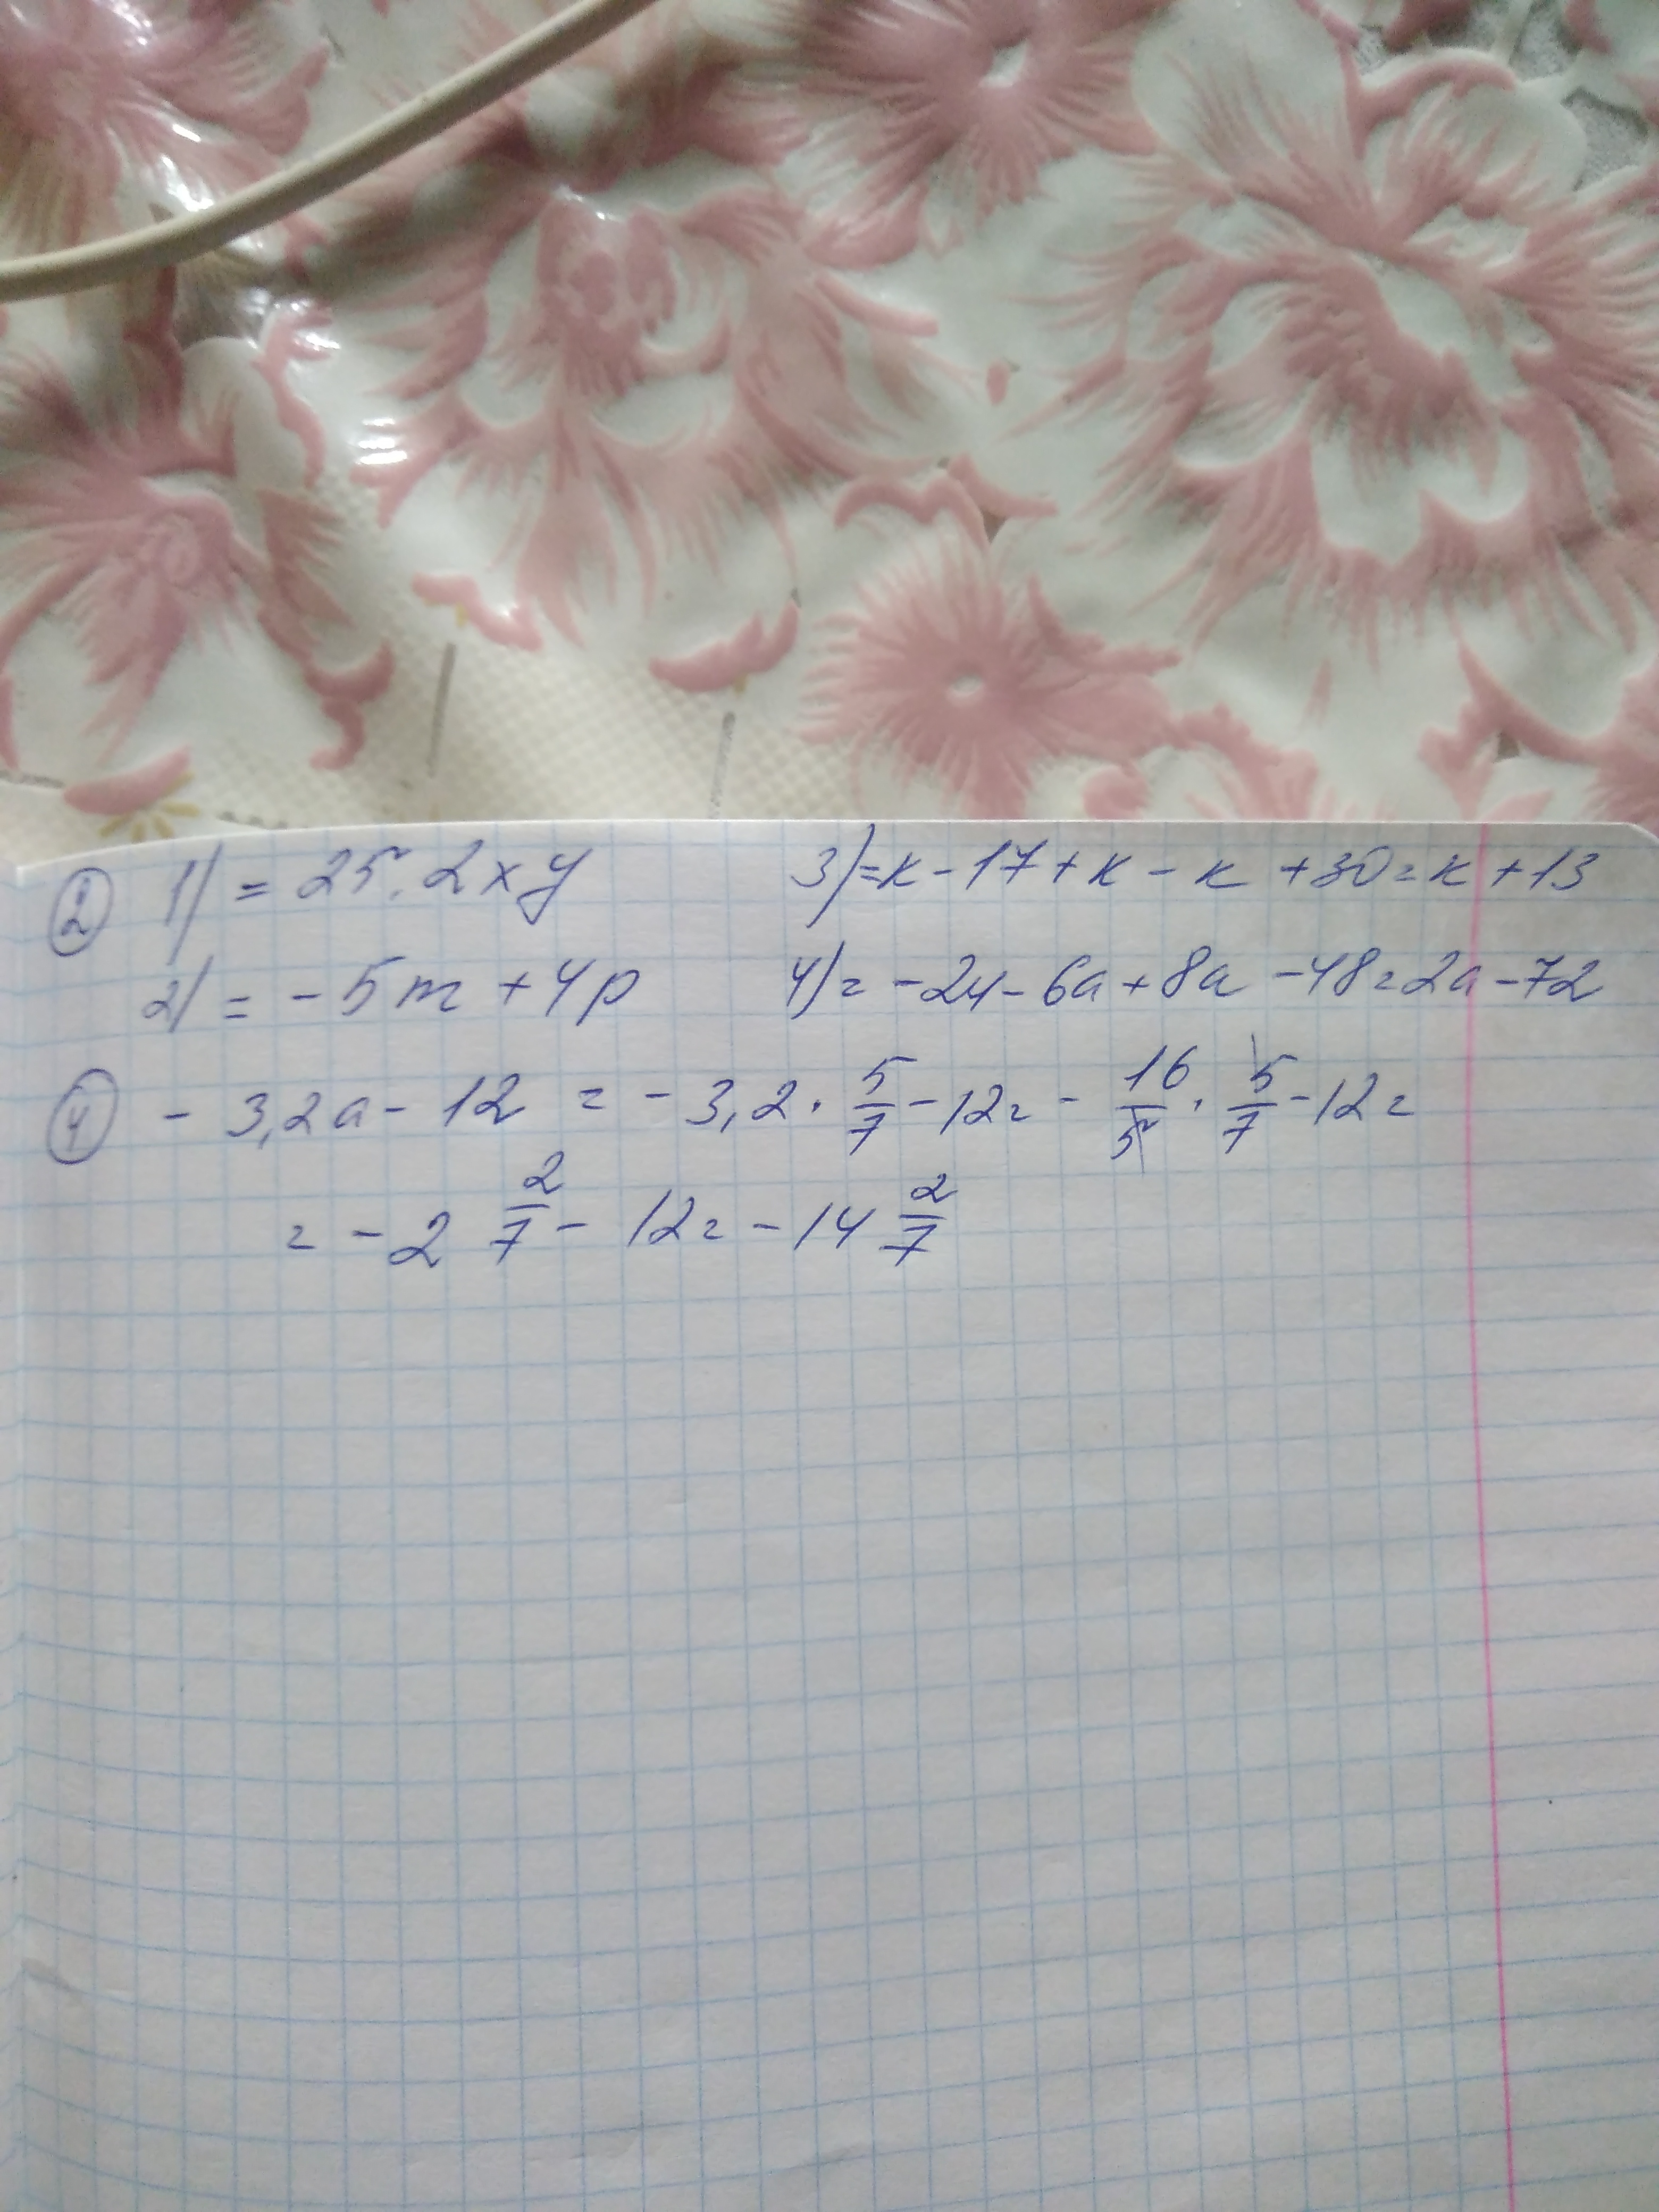 ② 1) = 25.2xy 3) = к - 17 + к - к + 30 = к + 13
2) = - 5m + 4p 4) = - 24 - 6a + 8a - 48 = 2a - 72
④ - 3,2a - 12 = - 3,2 · 5/7 - 12 = - 16/5 · 5/7 - 12 =
= - 2 2/7 - 12 = - 14 2/7